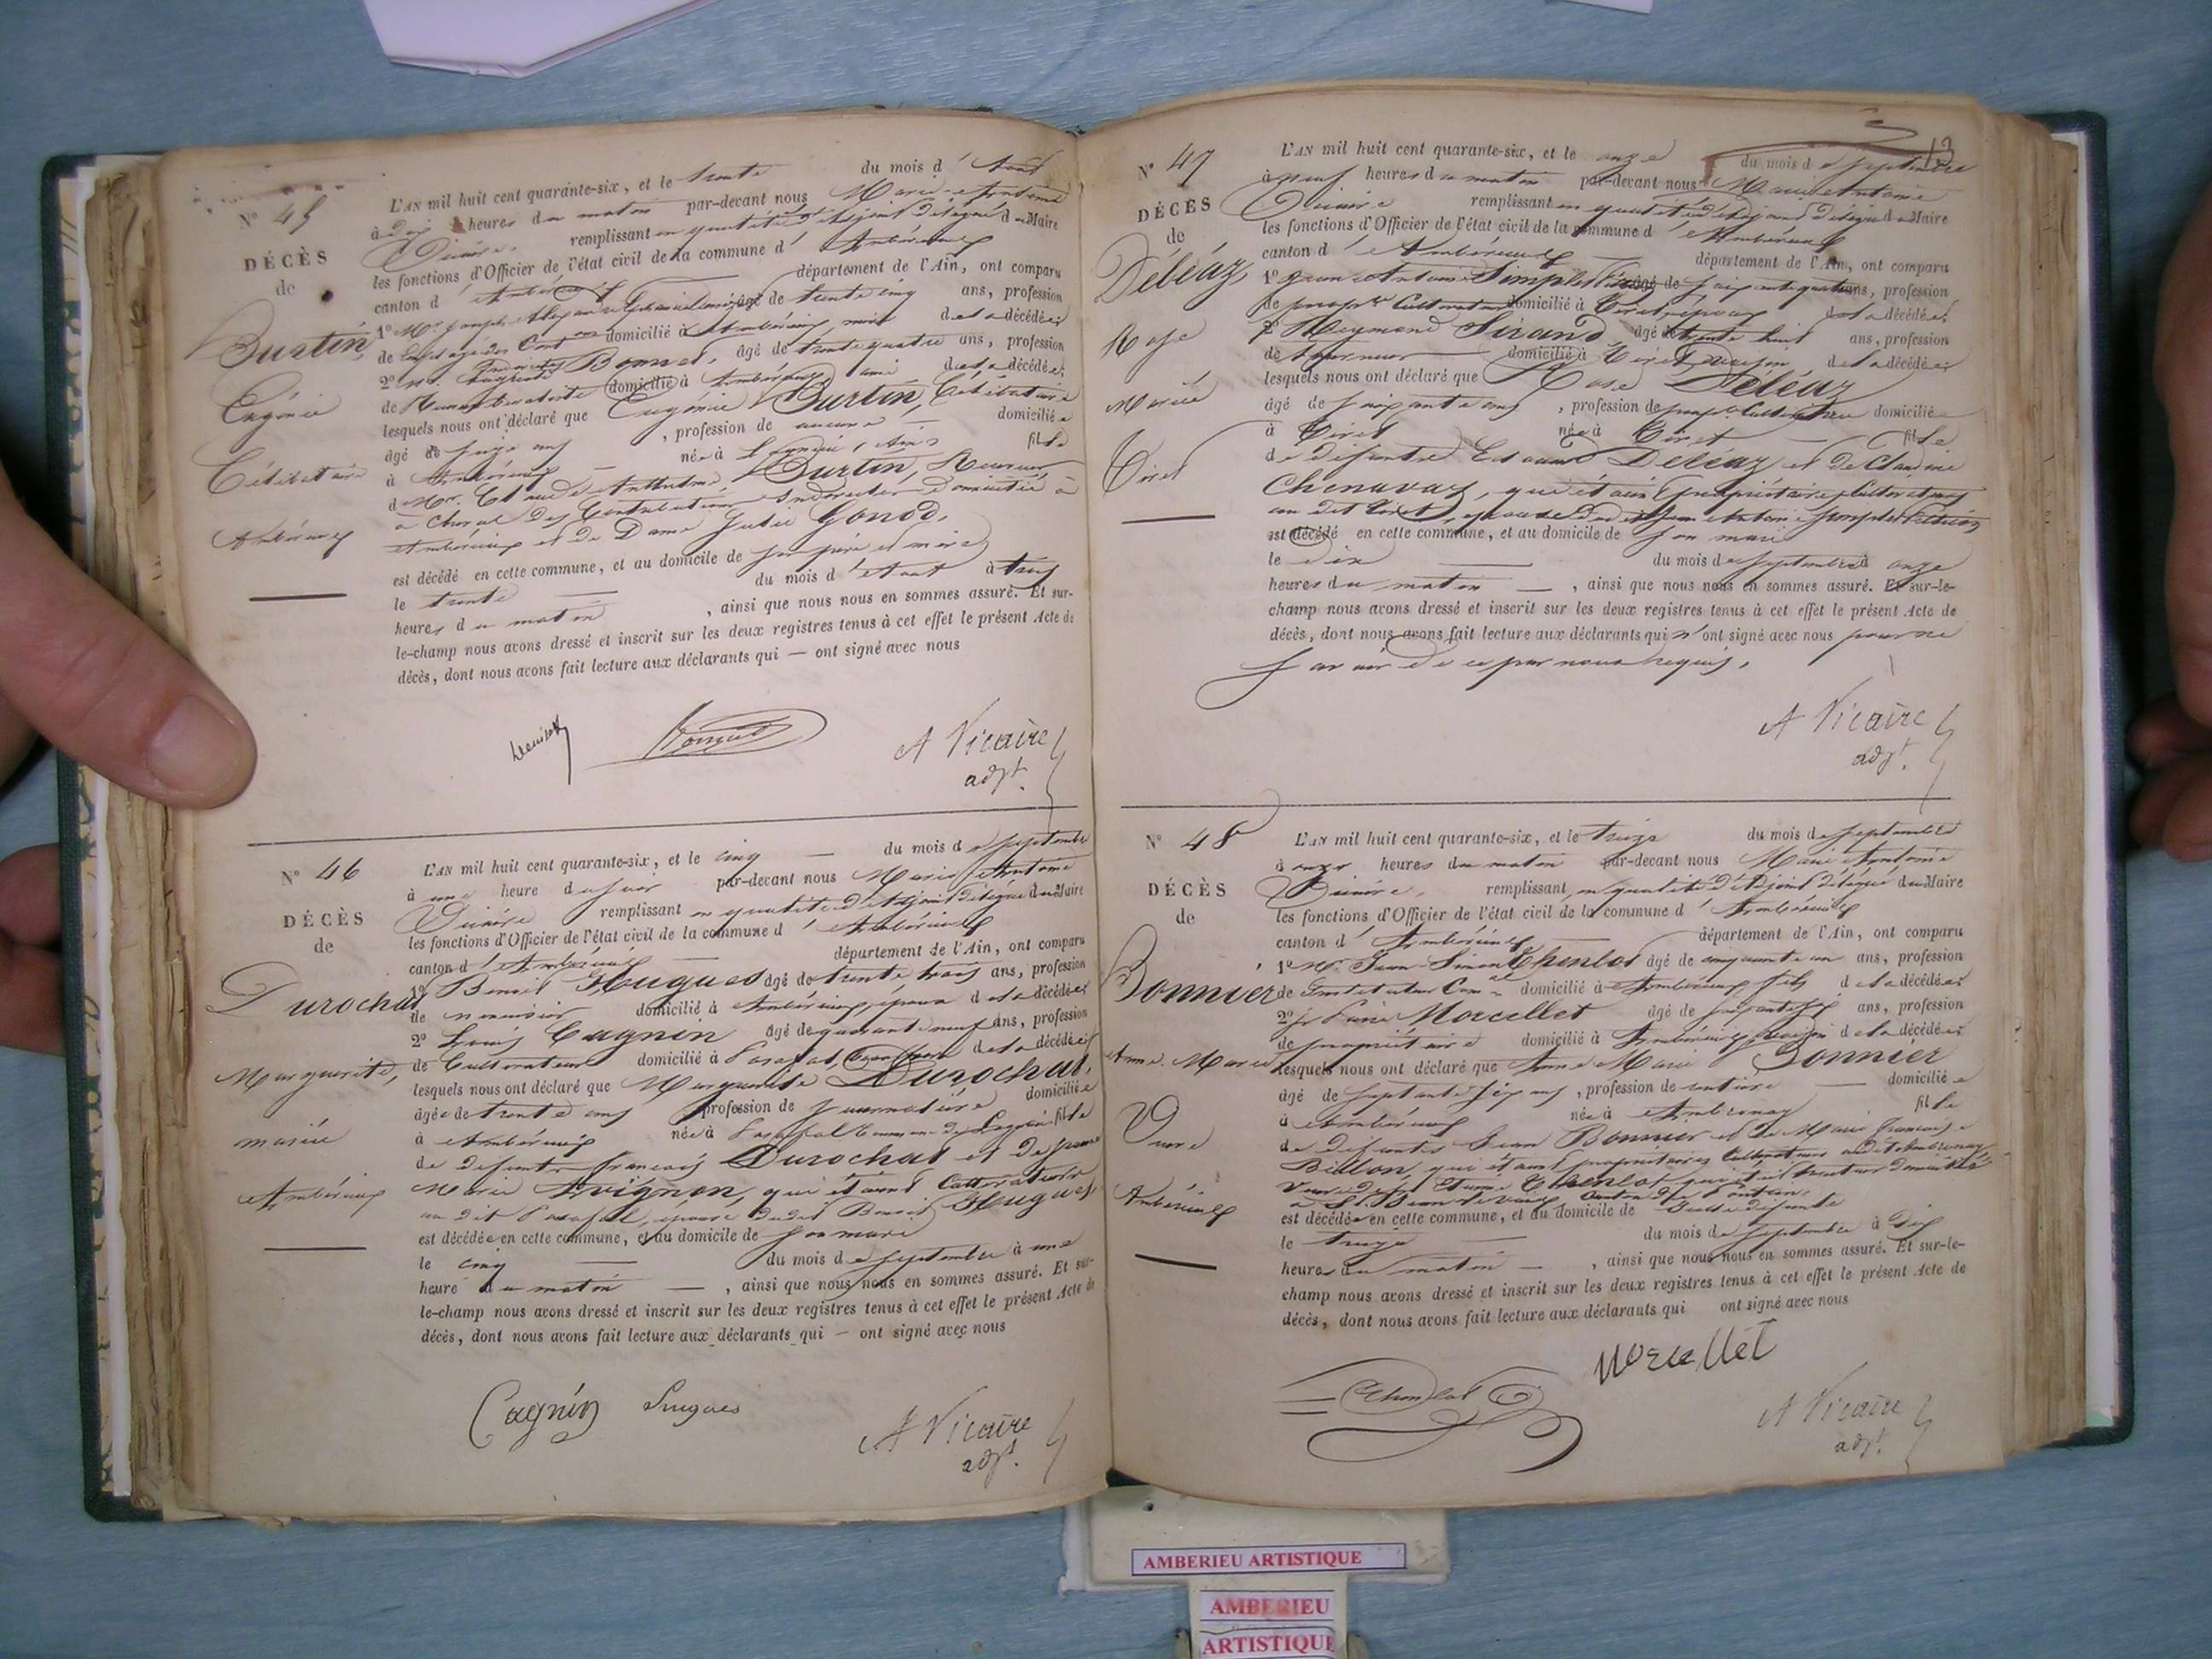 N° 45
DÉCÈS
de
Burtin
Eugénie
Célibataire
Ambérieux
L'AN mil huit cent quarante-six, et le trente du mois d'Aout
à dix heures du matin par-devant nous Marie Antoine
remplissant en qualité d'Adjoint délégué du Maire
les fonctions d'Officier de l'état civil de la commune d'Ambérieux
canton d'Ambérieux département de l'Ain, ont comparu
1° Mr. Joseph âgé de trente cinq ans, profession
de domicilié à Ambérieux, ami de la décédée;
2° Mr. Bonnet, âgé de trente quatre ans, profession
de domicilié à Ambérieux ami de la décédée;
lesquels nous ont déclaré que Eugénie Burtin, Célibataire
âgé de seize ans, profession de aucune domiciliée
à Ambérieux née à (Ain) fille
de Mr. Claude Anthelme Burtin, Receveur
à cheval des Contributions Indirectes domicilié à
Ambérieux et de Dame Julie Gonod,
est décédé en cette commune, et au domicile de ses père et mère
le trente du mois d'Aout à trois
heures du matin, ainsi que nous nous en sommes assuré. Et sur-
le-champ nous avons dressé et inscrit sur les deux registres tenus à cet effet le présent Acte de
décès, dont nous avons fait lecture aux déclarants qui — ont signé avec nous
Bonnet
A Vicaire
adjt.
N° 46
DÉCÈS
de
Durochat
Marguerite,
mariée
Ambérieux
L'AN mil huit cent quarante-six, et le cinq du mois de Septembre
à une heure du soir par-devant nous Marie Antoine
remplissant en qualité d'Adjoint délégué du Maire
les fonctions d'Officier de l'état civil de la commune d'Ambérieux
canton d'Ambérieux département de l'Ain, ont comparu
1° Benoit Hugues âgé de trente trois ans, profession
de menuisier domicilié à Ambérieux, époux de la décédée;
2° Louis Cagnin âgé de quarante neuf ans, profession
de Cultivateur domicilié à de la décédée;
lesquels nous ont déclaré que Marguerite Durochat,
âgée de trente ans profession de journalière domiciliée
à Ambérieux née à fille
de défunts François Durochat et de Jeanne
Marie Avignon, qui étaient Cultivateurs
au dit épouse dudit Benoit Hugues,
est décédée en cette commune, et au domicile de son mari
le cinq du mois de Septembre à une
heure du matin, ainsi que nous nous en sommes assuré. Et sur-
le-champ nous avons dressé et inscrit sur les deux registres tenus à cet effet le présent Acte de
décès, dont nous avons fait lecture aux déclarants qui — ont signé avec nous
Cagnin
A Vicaire
adjt.
13
N° 47
DÉCÈS
de
Déléaz,
Rose
Mariée
Tiret
L'AN mil huit cent quarante-six, et le onze du mois de Septembre
à neuf heures du matin par-devant nous Marie Antoine
remplissant en qualité d'Adjoint délégué du Maire
les fonctions d'Officier de l'état civil de la commune d'Ambérieux
canton d'Ambérieux département de l'Ain, ont comparu
1° Jean Antoine Simplet âgé de soixante quatre ans, profession
de propre Cultivateur domicilié à Tiret, époux de la décédée;
2° Reymond Sirand âgé de trente huit ans, profession
de domicilié à Tiret, voisin de la décédée;
lesquels nous ont déclaré que Rose Déléaz
âgé de soixante ans, profession de domiciliée
à Tiret née à Tiret fille
de défuntes Déléaz et de Claudine
Chenavaz, qui étaient propriétaires Cultivateurs
au dit Tiret, épouse dudit Jean Antoine Simplet
est décédé en cette commune, et au domicile de son mari
le dix du mois de Septembre à onze
heures du matin, ainsi que nous nous en sommes assuré. Et sur-le-
champ nous avons dressé et inscrit sur les deux registres tenus à cet effet le présent Acte de
décès, dont nous avons fait lecture aux déclarants qui n'ont signé avec nous pour ne
savoir de ce par nous requis.
A Vicaire
adjt.
N° 48
DÉCÈS
de
Bonnier
Anne Marie
Veuve
Ambérieux
L'AN mil huit cent quarante-six, et le treize du mois de Septembre
à onze heures du matin par-devant nous Marie Antoine
remplissant en qualité d'Adjoint délégué du Maire
les fonctions d'Officier de l'état civil de la commune d'Ambérieux
canton d'Ambérieux département de l'Ain, ont comparu
1° Mr. Jean Simon âgé de cinquante un ans, profession
de Instituteur Comal domicilié à Ambérieux, fils de la décédée;
2° Morcellet âgé de ans, profession
de propriétaire domicilié à Ambérieux, voisin de la décédée;
lesquels nous ont déclaré que Anne Marie Bonnier
âgé de Septante Six ans, profession de rentière domiciliée
à Ambérieux née à Ambronay fille
de défuntes Jean Bonnier et de Marie Françoise
Billon, qui étaient propriétaires Cultivateurs audit Ambronay
est décédée en cette commune, et au domicile de
le treize du mois de Septembre à dix
heures du matin, ainsi que nous nous en sommes assuré. Et sur-le-
champ nous avons dressé et inscrit sur les deux registres tenus à cet effet le présent Acte de
décès, dont nous avons fait lecture aux déclarants qui ont signé avec nous
Morcellet
A Vicaire
adjt.
AMBERIEU ARTISTIQUE
AMBERIEU
ARTISTIQUE